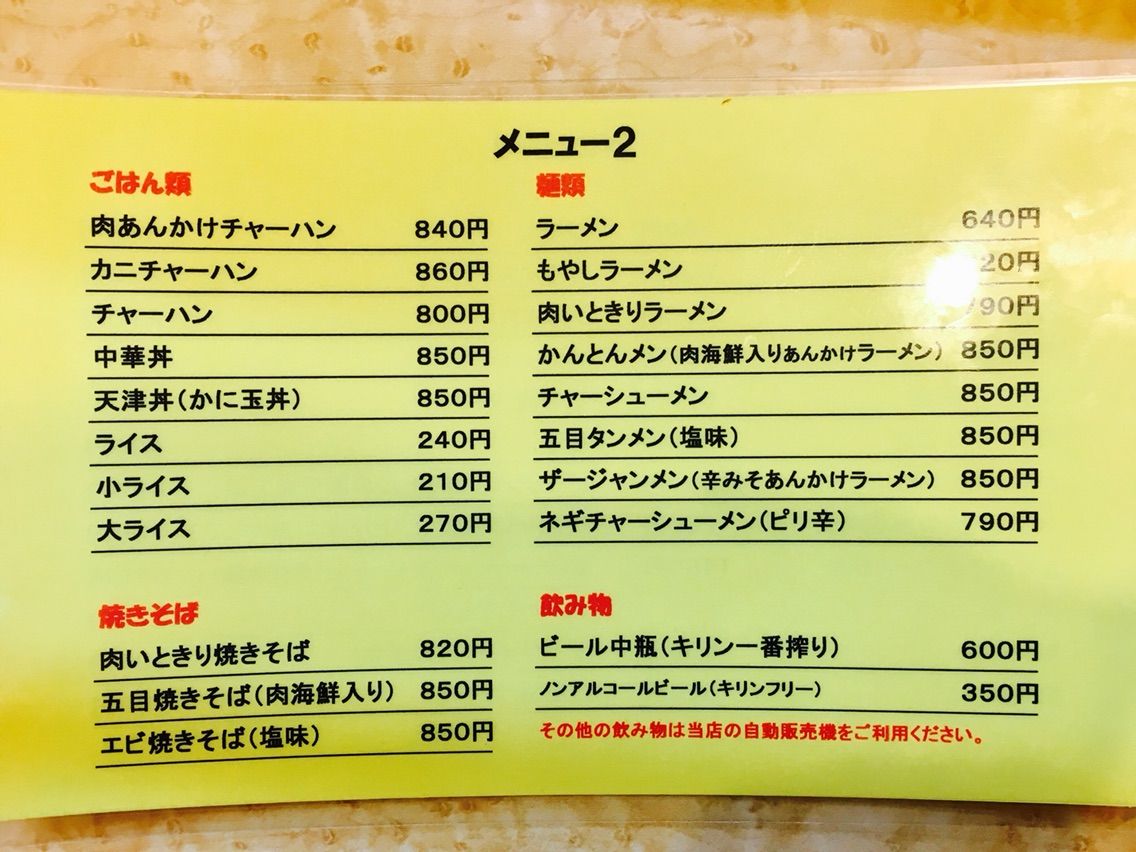 メニュー2
ごはん類
肉あんかけチャーハン 840円
カニチャーハン 860円
チャーハン 800円
中華丼 850円
天津丼(かに玉丼) 850円
ライス 240円
小ライス 210円
大ライス 270円
焼きそば
肉いときり焼きそば 820円
五目焼きそば(肉海鮮入り) 850円
エビ焼きそば(塩味) 850円
麺類
ラーメン 640円
もやしラーメン
肉いときりラーメン 790円
かんとんメン(肉海鮮入りあんかけラーメン) 850円
チャーシューメン 850円
五目タンメン(塩味) 850円
ザージャンメン(辛みそあんかけラーメン) 850円
ネギチャーシューメン(ピリ辛) 790円
飲み物
ビール中瓶(キリン一番搾り) 600円
ノンアルコールビール(キリンフリー) 350円
その他の飲み物は当店の自動販売機をご利用ください。